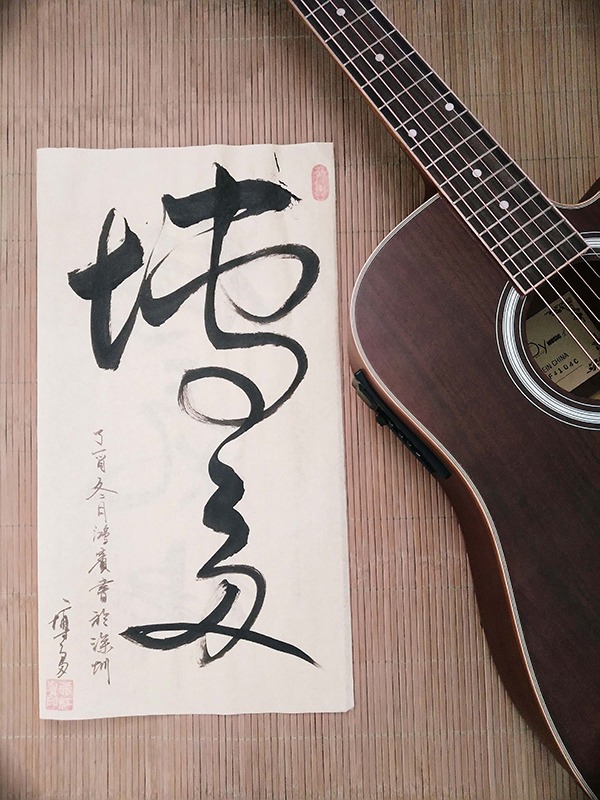 博多
丁酉冬月鴻賓書於深圳
博多
IN CHINA